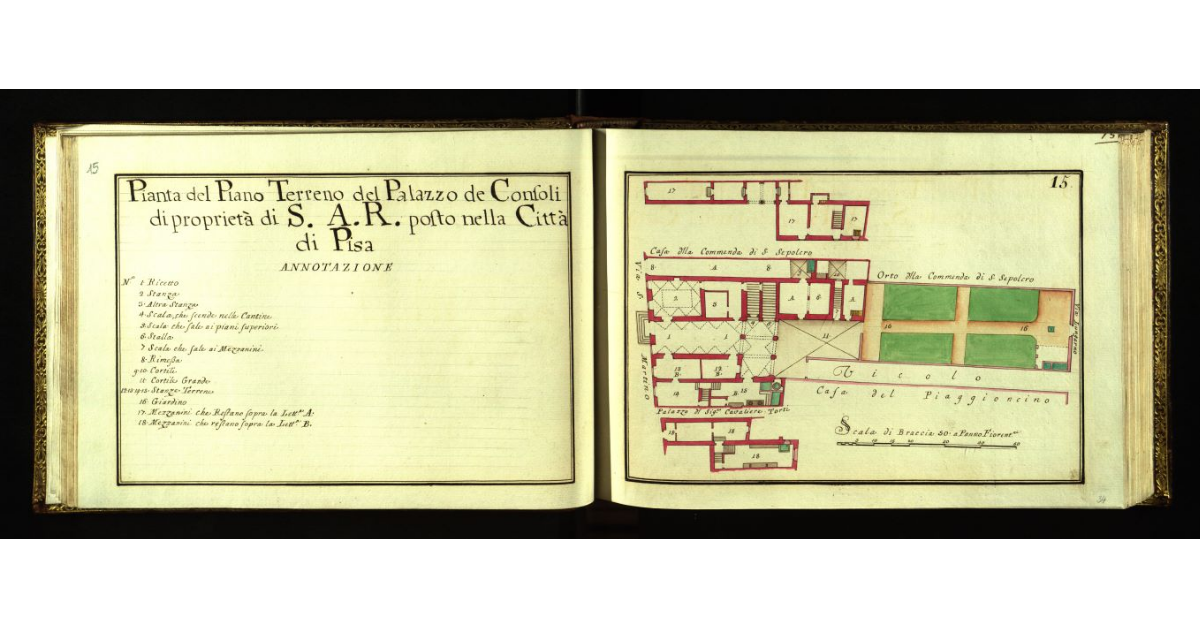 15
Pianta del Piano Terreno del Palazzo de Consoli
di proprietà di S. A. R. posto nella Città
di Pisa
ANNOTAZIONE
N.º 1· Ricetto
2· Stanza
3· Altra Stanza
4· Scala, che scende nelle Cantine
5· Scala che sale ai piani superiori
6· Stalla
7· Scala che sale ai Mezzanini
8· Rimessa
9·10· Cortili
11· Cortile Grande
12·13·14·15· Stanze Terrene
16· Giardino
17· Mezzanini che Restano sopra la Lett.ª A·
18· Mezzanini che restano sopra la Lett.ª B·
15·
17
17
17
Casa della Commenda di S. Sepolcro
8
A
8
Orto della Commenda di S. Sepolcro
Via S.
Martino
2
3
A
6
A
1
1
11
16
16
B
B
14
B
15
Vicolo
Casa del Piaggioncino
Palazzo del Sig.r Cavaliere Porti
18
18
18
Scala di Braccia 50· a Panno Fiorent.no
34